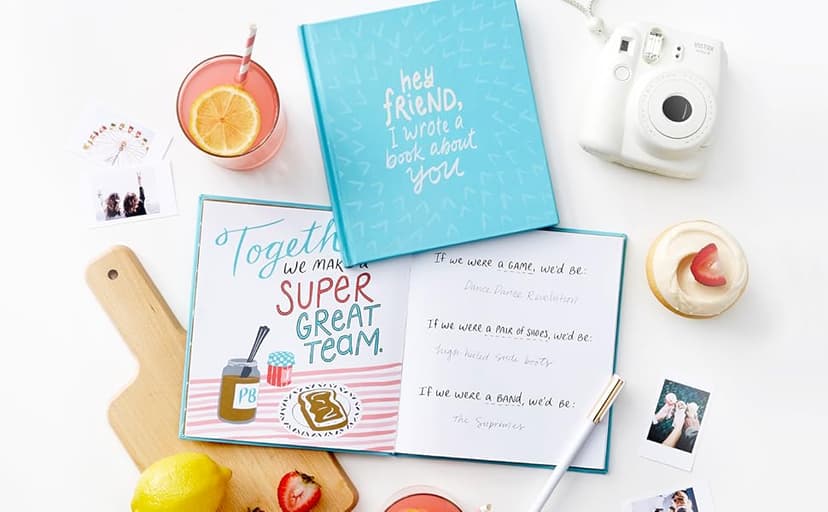 hey
friend,
I wrote a
book about
you
instax
Together
we make a
SUPER
GREAT
TEAM.
PB
If we were a game, we'd be:
Dance Dance Revolution
If we were a pair of shoes, we'd be:
high-heeled suede boots
If we were a band, we'd be:
The Supremes